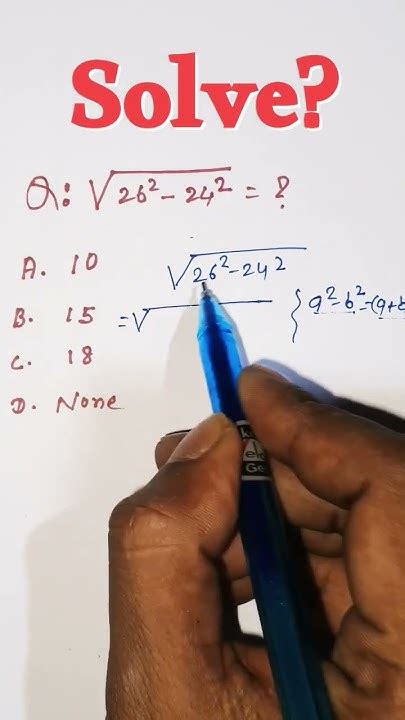 Solve?
Q: √26² - 24² = ?
A. 10
B. 15
C. 18
D. None
√26² - 24²
= √
{ a² - b² = (a+b